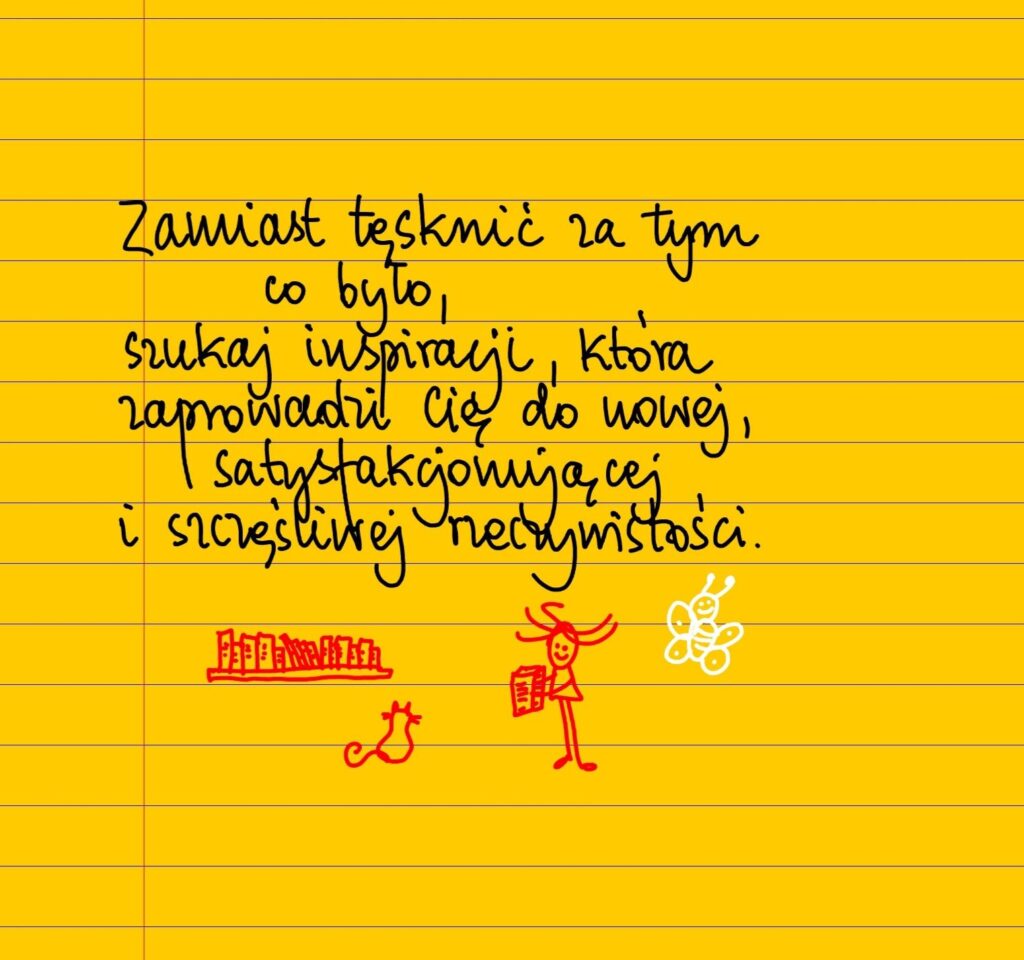 Zamiast tęsknić za tym
co było,
szukaj inspiracji, która
zaprowadzi Cię do nowej,
satysfakcjonującej
i szczęśliwej rzeczywistości.